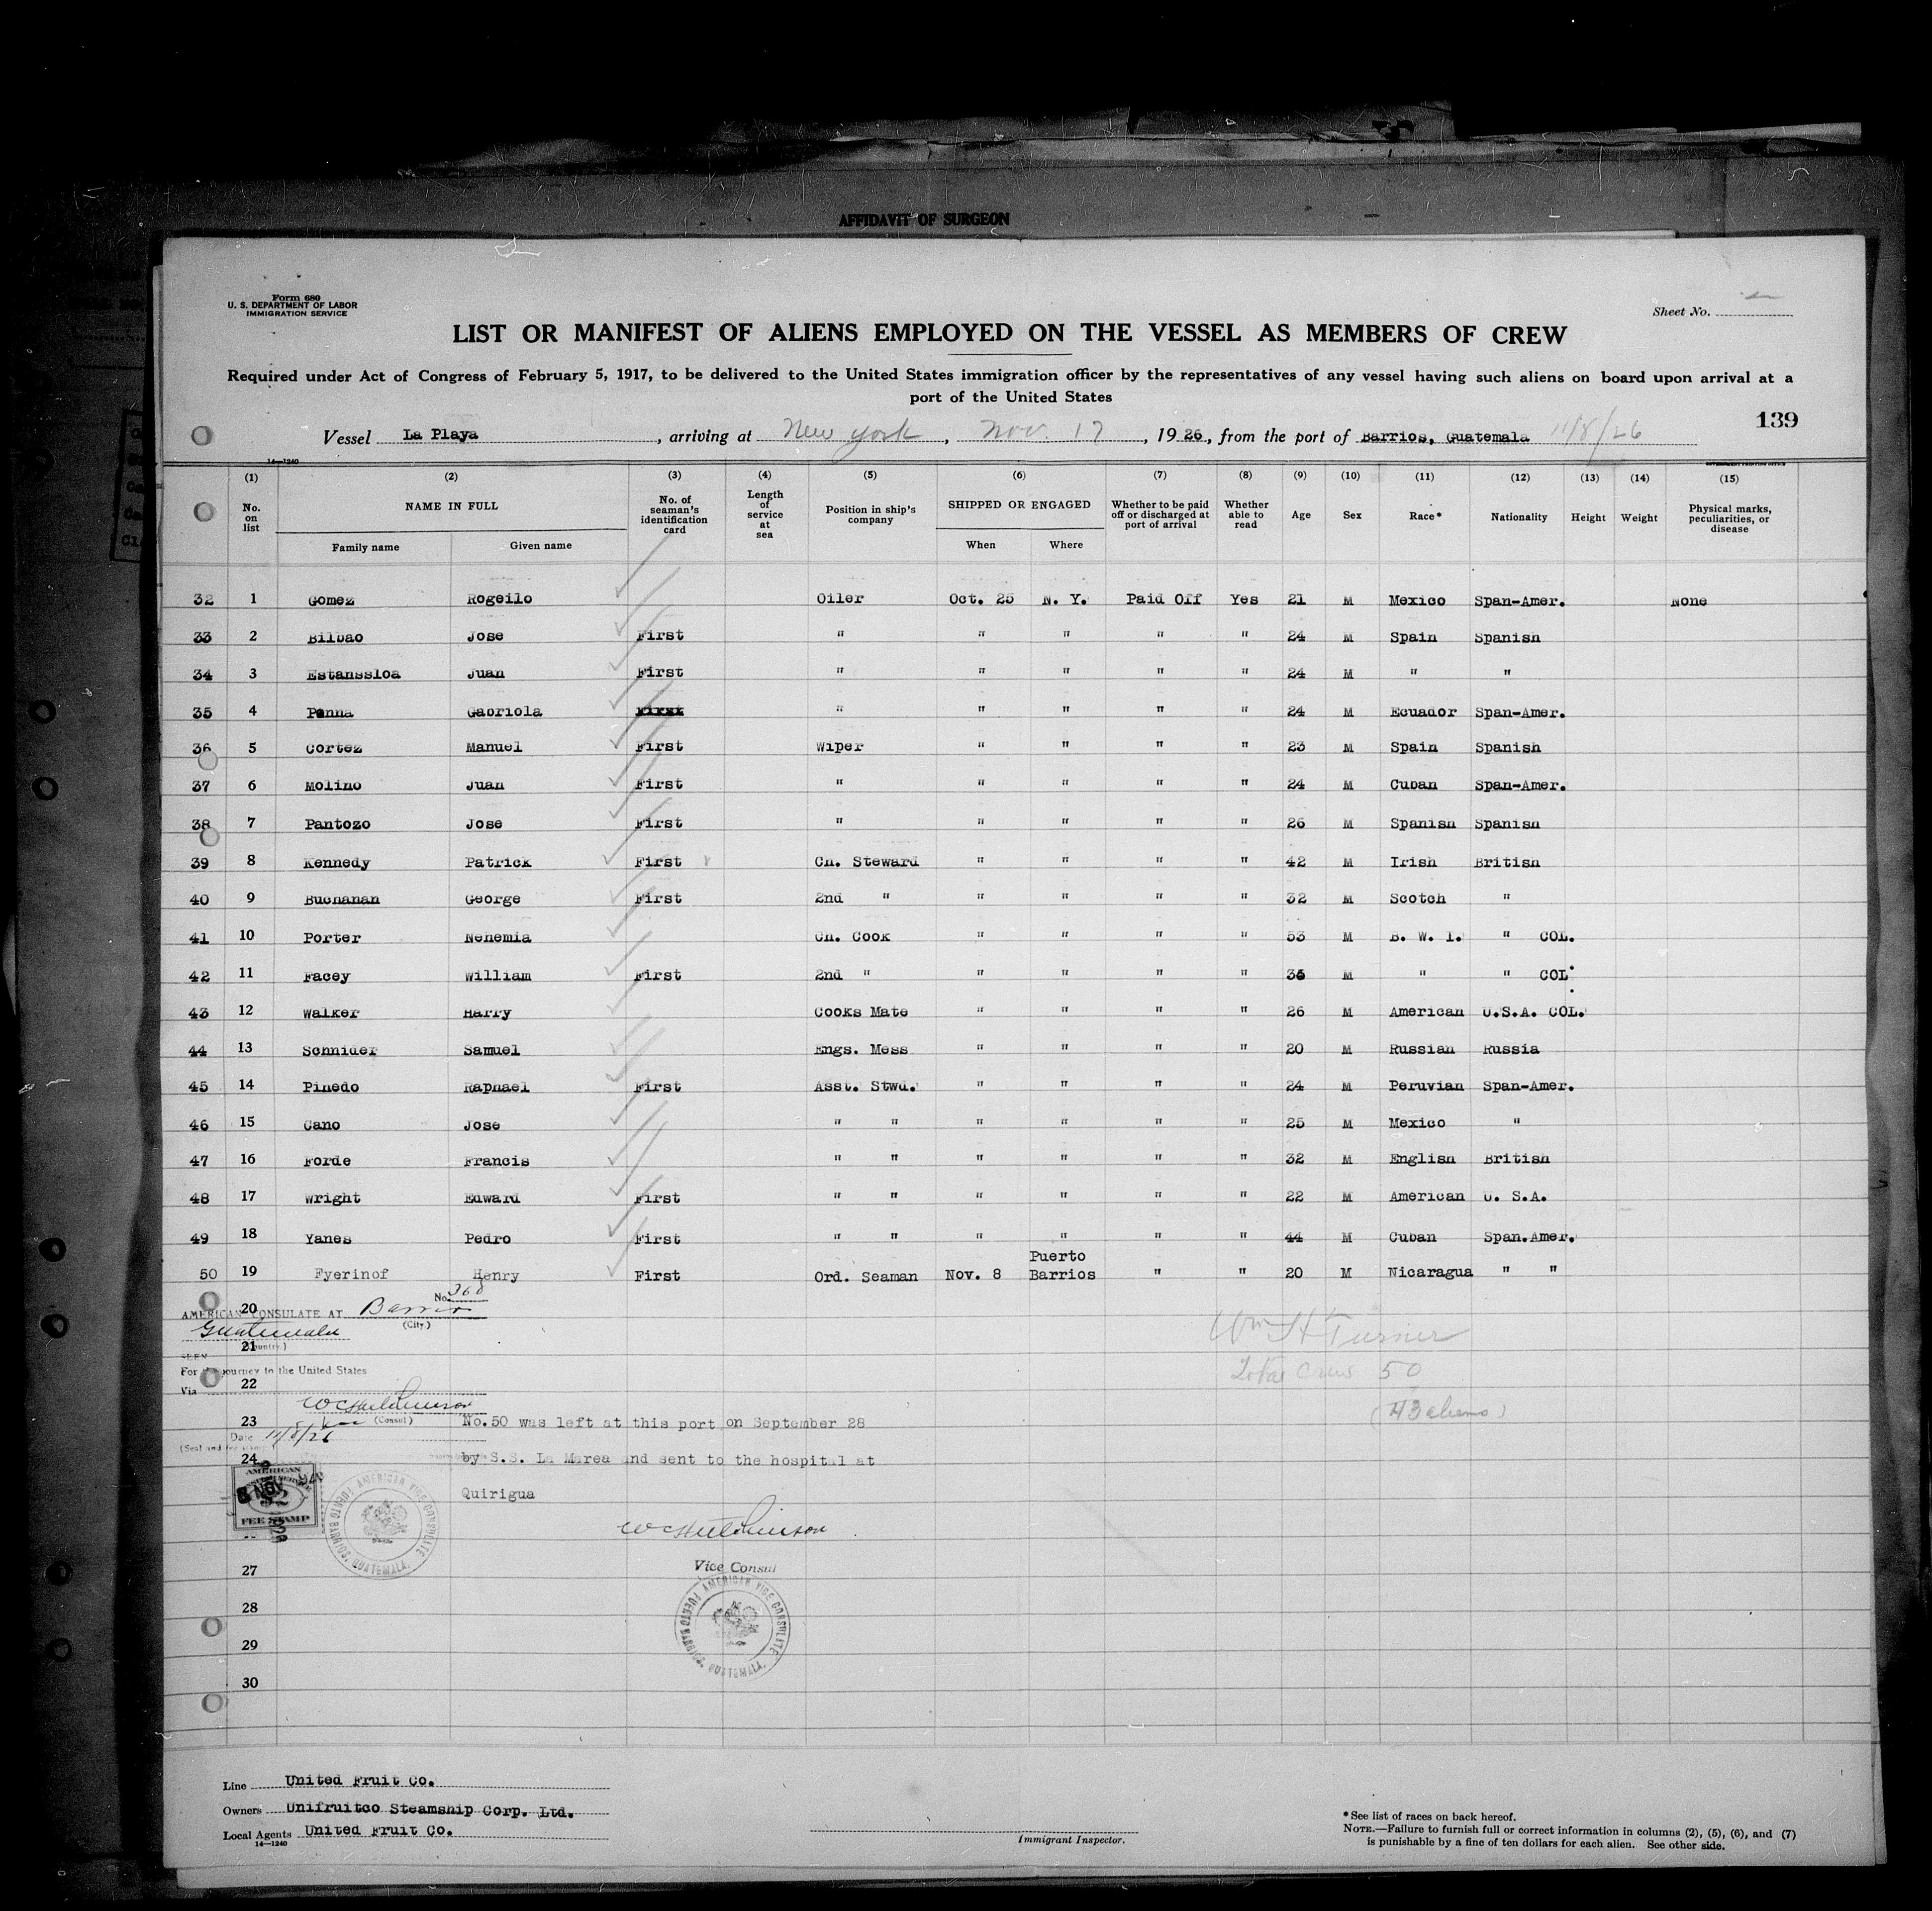 AFFIDAVIT OF SURGEON
Form 680
U. S. DEPARTMENT OF LABOR
IMMIGRATION SERVICE
Sheet No.
LIST OR MANIFEST OF ALIENS EMPLOYED ON THE VESSEL AS MEMBERS OF CREW
Required under Act of Congress of February 5, 1917, to be delivered to the United States immigration officer by the representatives of any vessel having such aliens on board upon arrival at a
port of the United States
139
Vessel La Playa, arriving at New York, Nov. 17, 1926, from the port of Barrios, Guatemala 11/8/26
14—1240
GOVERNMENT PRINTING OFFICE
(1) (2) (3) (4) (5) (6) (7) (8) (9) (10) (11) (12) (13) (14) (15)
No. on list NAME IN FULL Family name Given name No. of seaman's identification card Length of service at sea Position in ship's company SHIPPED OR ENGAGED When Where Whether to be paid off or discharged at port of arrival Whether able to read Age Sex Race* Nationality Height Weight Physical marks, peculiarities, or disease
32 1 Gomez Rogeilo Oiler Oct. 25 N. Y. Paid Off Yes 21 M Mexico Span-Amer. None
33 2 Bilbao Jose First " " " " " 24 M Spain Spanish
34 3 Estanssloa Juan First " " " " " 24 M " "
35 4 Penna Gabriola " " " " " 24 M Ecuador Span-Amer.
36 5 Cortez Manuel First Wiper " " " " 23 M Spain Spanish
37 6 Molino Juan First " " " " " 24 M Cuban Span-Amer.
38 7 Pantozo Jose First " " " " " 26 M Spanish Spanish
39 8 Kennedy Patrick First Ch. Steward " " " " 42 M Irish British
40 9 Buchanan George First 2nd " " " " " 32 M Scotch "
41 10 Porter Nehemia Ch. Cook " " " " 53 M B. W. I. " COL.
42 11 Facey William First 2nd " " " " " 36 M " " COL.
43 12 Walker Harry Cooks Mate " " " " 26 M American U.S.A. COL.
44 13 Schnider Samuel Engs. Mess " " " " 20 M Russian Russia
45 14 Pinedo Raphael First Asst. Stwd. " " " " 24 M Peruvian Span-Amer.
46 15 Cano Jose " " " " " " 25 M Mexico "
47 16 Forde Francis " " " " " " 32 M English British
48 17 Wright Edward First " " " " " " 22 M American U. S.A.
49 18 Yanes Pedro First " " " " " " 44 M Cuban Span.Amer.
50 19 Fyerinof Henry First Ord. Seaman Nov. 8 Puerto Barrios " " 20 M Nicaragua " "
No. 368
20
AMERICAN CONSULATE AT Barrios
(City)
Guatemala
21
(Country)
For the journey to the United States
Via
22
Wm H Turner
Total Crew 50
(43 aliens)
WC Hutchinson
23
(Consul)
Date 11/8/26
No.50 was left at this port on September 28
24
by S.S. La Marea and sent to the hospital at
Quirigua
AMERICAN
$2
FEE STAMP
8 NOV 1926
AMERICAN VICE CONSULATE
PUERTO BARRIOS, GUATEMALA.
WC Hutchinson
Vice Consul
AMERICAN VICE CONSULATE
PUERTO BARRIOS, GUATEMALA.
27
28
29
30
Line United Fruit Co.
Owners Unifruitco Steamship Corp. Ltd.
Local Agents United Fruit Co.
14—1240
Immigrant Inspector.
*See list of races on back hereof.
NOTE.—Failure to furnish full or correct information in columns (2), (5), (6), and (7)
is punishable by a fine of ten dollars for each alien. See other side.